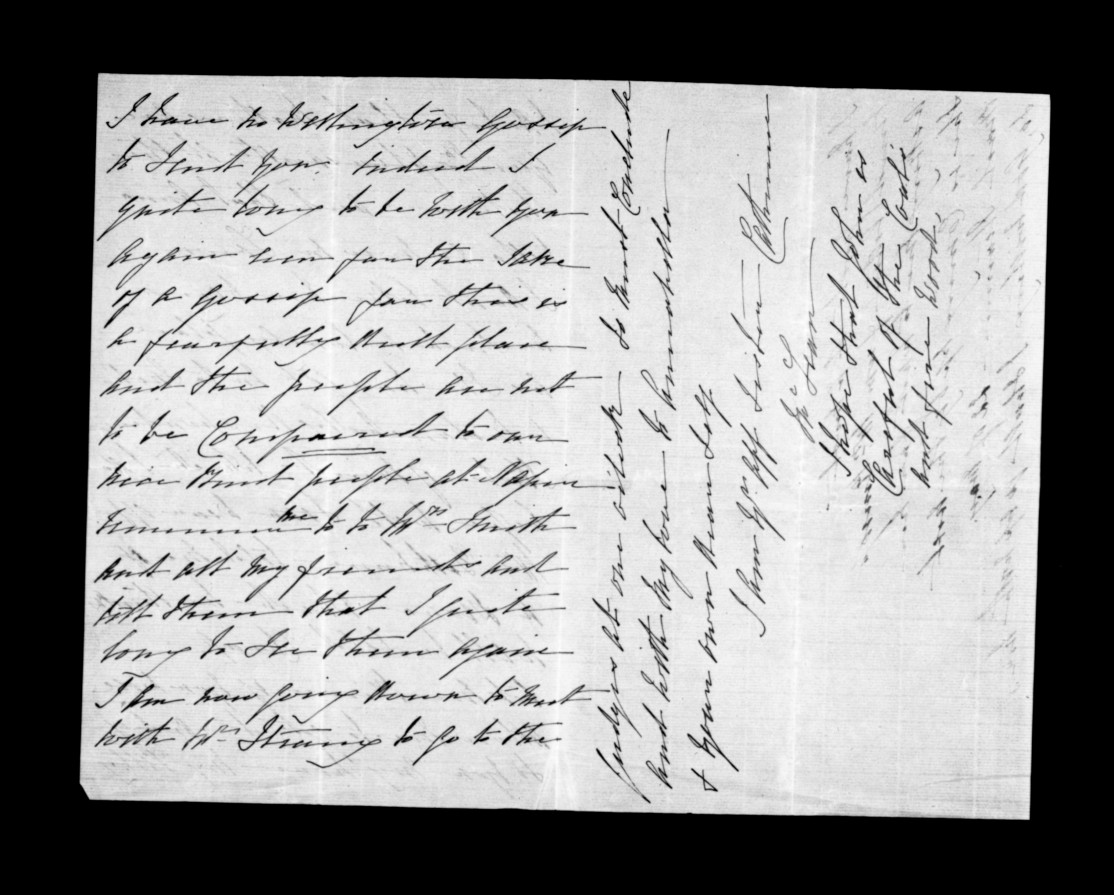 I have no Wellington Gossip
to send you. indeed I
quite long to be with you
again even for the sake
of a gossip for this is
a fearfully dull place
and the people are not
to be Compaired to our
nice kind people at Napier
remember me to to Mrs Smith
and all my friends and
tell them that I quite
long to see them again
I am now going down to meet
with Mrs Strang to go to the
Judges at one oclock so must Conclude
and with my love to Annabella
& your own dear self
I am yr aff Sister Catherine
McLean
I hope that John is
Careful of the Coals
and fire wood